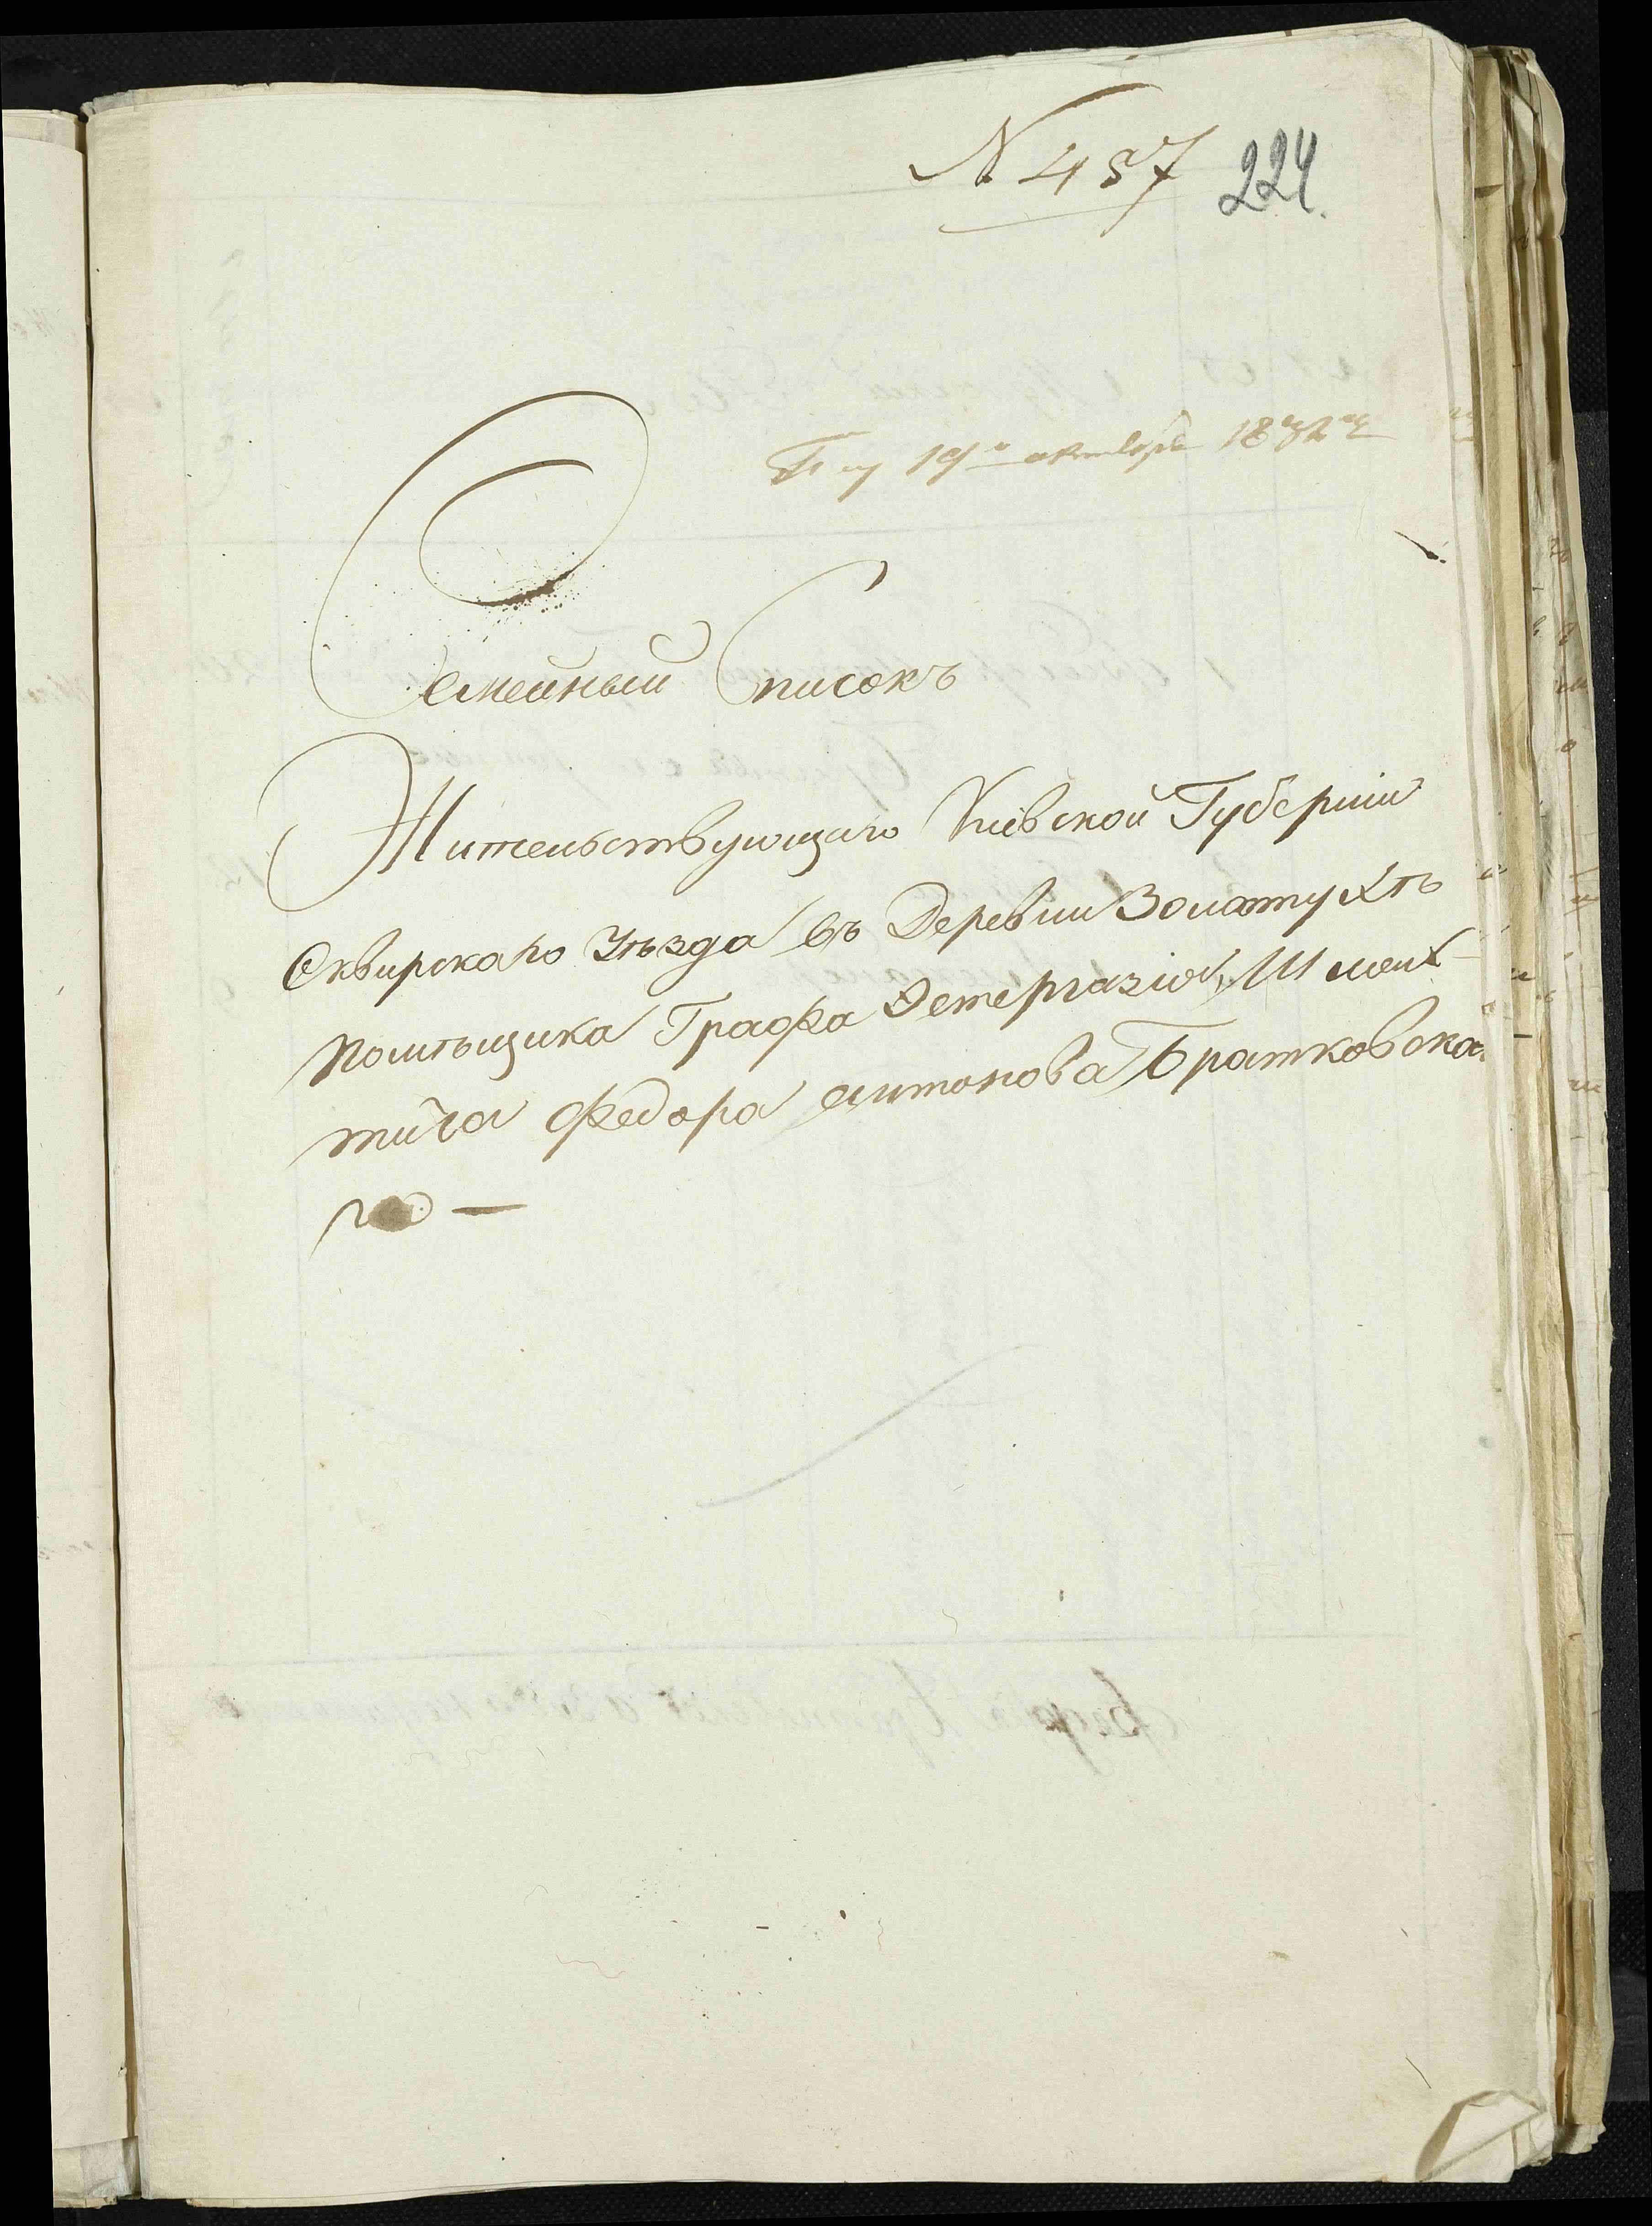 N 457 224.
19го октября 1832
Семейный Списокъ
Жительствующаго Кiевской Губернiи
Сквирскаго Уѣзда въ Деревни Золотухѣ
Помѣщика Графа Эстергазiя, Шлях-
тича Федора Антонова Братковска
го —